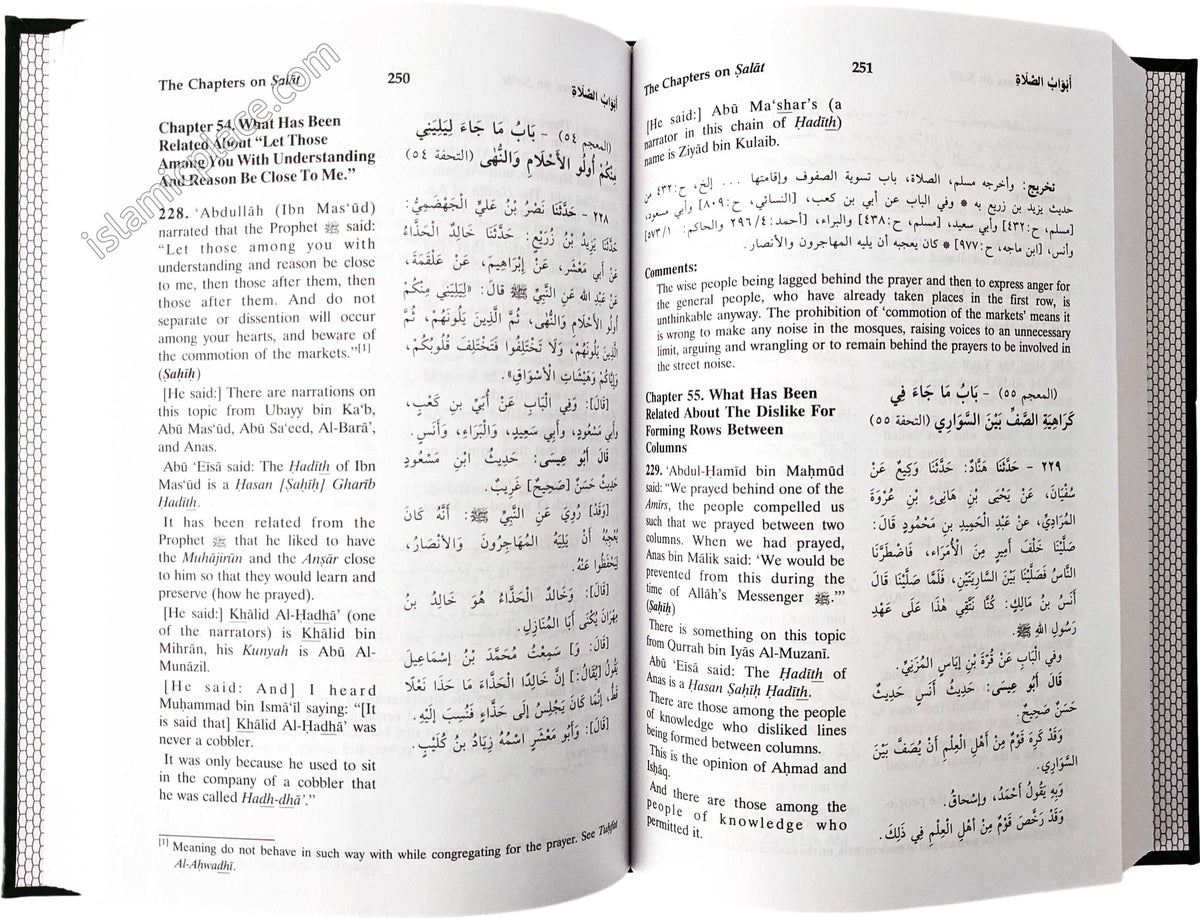 islamicplace.com
The Chapters on Ṣalāt
250
أبواب الصَّلَاةِ
Chapter 54. What Has Been
Related About “Let Those
Among You With Understanding
And Reason Be Close To Me.”
228. ‘Abdullāh (Ibn Mas‘ūd)
narrated that the Prophet ﷺ said:
“Let those among you with
understanding and reason be close
to me, then those after them, then
those after them. And do not
separate or dissention will occur
among your hearts, and beware of
the commotion of the markets.”[1]
(Ṣaḥīḥ)
[He said:] There are narrations on
this topic from Ubayy bin Ka‘b,
Abū Mas‘ūd, Abū Sa‘eed, Al-Barā’,
and Anas.
Abū ‘Eīsā said: The Ḥadīth of Ibn
Mas‘ūd is a Ḥasan [Ṣaḥīḥ] Gharīb
Ḥadīth.
It has been related from the
Prophet ﷺ that he liked to have
the Muhājirūn and the Anṣār close
to him so that they would learn and
preserve (how he prayed).
[He said:] Khālid Al-Ḥadhā’ (one
of the narrators) is Khālid bin
Mihrān, his Kunyah is Abū Al-
Munāzil.
[He said: And] I heard
Muḥammad bin Ismā‘īl saying: “[It
is said that] Khālid Al-Ḥadhā’ was
never a cobbler.
It was only because he used to sit
in the company of a cobbler that
he was called Hadh-dhā’.”
(المعجم ٥٤) - بَابُ مَا جَاءَ لِيَلِيَنِي
مِنْكُمْ أُولُو الْأَحْلَامِ وَالنُّهَى (التحفة ٥٤)
٢٢٨ - حَدَّثَنَا نَصْرُ بْنُ عَلِيٍّ الْجَهْضَمِيُّ:
حَدَّثَنَا يَزِيدُ بْنُ زُرَيْعٍ: حَدَّثَنَا خَالِدٌ الْحَذَّاءُ
عَنْ أَبِي مَعْشَرٍ، عَنْ إِبْرَاهِيمَ، عَنْ عَلْقَمَةَ،
عَنْ عَبْدِ اللهِ عَنِ النَّبِيِّ ﷺ قَالَ: «لِيَلِيَنِي مِنْكُمْ
أُولُو الْأَحْلَامِ وَالنُّهَى، ثُمَّ الَّذِينَ يَلُونَهُمْ، ثُمَّ
الَّذِينَ يَلُونَهُمْ، وَلَا تَخْتَلِفُوا فَتَخْتَلِفَ قُلُوبُكُمْ،
وَإِيَّاكُمْ وَهَيْشَاتِ الْأَسْوَاقِ».
[قَالَ]: وَفِي الْبَابِ عَنْ أُبَيِّ بنِ كَعْبٍ،
وأبي مَسْعُودٍ، وأبي سَعِيدٍ، وَالْبَرَاءِ، وَأَنَسٍ.
قَالَ أَبُو عِيسَى: حَدِيثُ ابْنِ مَسْعُودٍ
حَدِيثٌ حَسَنٌ [صَحِيحٌ] غَرِيبٌ.
[وَقَدْ] رُوِيَ عَنِ النَّبِيِّ ﷺ: أَنَّهُ كَانَ
يُعْجِبُهُ أَنْ يَلِيَهُ الْمُهَاجِرُونَ وَالْأَنْصَارُ،
لِيَحْفَظُوا عَنْهُ.
[قَالَ]: وَخَالِدٌ الْحَذَّاءُ هُوَ خَالِدُ بنُ
مِهْرَانَ يُكْنَى أَبَا الْمُنَازِلِ.
[قَالَ: وَ] سَمِعْتُ مُحَمَّدَ بْنَ إِسْمَاعِيلَ
يَقُولُ [يُقَالُ]: إِنَّ خَالِدًا الْحَذَّاءَ مَا حَذَا نَعْلًا
قَطُّ، إِنَّمَا كَانَ يَجْلِسُ إِلَى حَذَّاءٍ فَنُسِبَ إِلَيْهِ.
[قَالَ]: وَأَبُو مَعْشَرٍ اسْمُهُ زِيَادُ بنُ كُلَيْبٍ.
[1] Meaning do not behave in such way with while congregating for the prayer. See Tuḥfat
Al-Aḥwadhī.
The Chapters on Ṣalāt
251
أَبْوَابُ الصَّلَاةِ
[He said:] Abū Ma‘shar’s (a
narrator in this chain of Ḥadīth)
name is Ziyād bin Kulaib.
تخريج: وأخرجه مسلم، الصلاة، باب تسوية الصفوف وإقامتها ... إلخ، ح:٤٣٢ من
حديث يزيد بن زريع به * وفي الباب عن أبي بن كعب، [النسائي، ح:٨٠٩] وأبي مسعود،
[مسلم، ح:٤٣٢] وأبي سعيد، [مسلم، ح:٤٣٨] والبراء، [أحمد:٤/ ٢٩٦ والحاكم: ١/ ٥٧٣]
وأنس، [ابن ماجه، ح:٩٧٧] * كان يعجبه أن يليه المهاجرون والأنصار.
Comments:
The wise people being lagged behind the prayer and then to express anger for
the general people, who have already taken places in the first row, is
unthinkable anyway. The prohibition of ‘commotion of the markets’ means it
is wrong to make any noise in the mosques, raising voices to an unnecessary
limit, arguing and wrangling or to remain behind the prayers to be involved in
the street noise.
Chapter 55. What Has Been
Related About The Dislike For
Forming Rows Between
Columns
229. ‘Abdul-Ḥamīd bin Maḥmūd
said: “We prayed behind one of the
Amīrs, the people compelled us
such that we prayed between two
columns. When we had prayed,
Anas bin Mālik said: ‘We would be
prevented from this during the
time of Allāh’s Messenger ﷺ.’”
(Ṣaḥīḥ)
There is something on this topic
from Qurrah bin Iyās Al-Muzanī.
Abū ‘Eīsā said: The Ḥadīth of
Anas is a Ḥasan Ṣaḥīḥ Ḥadīth.
There are those among the people
of knowledge who disliked lines
being formed between columns.
This is the opinion of Aḥmad and
Isḥāq.
And there are those among the
people of knowledge who
permitted it.
(المعجم ٥٥) - بَابُ مَا جَاءَ فِي
كَرَاهِيَةِ الصَّفِّ بَيْنَ السَّوَارِي (التحفة ٥٥)
٢٢٩ - حَدَّثَنَا هَنَّادٌ: حَدَّثَنَا وَكِيعٌ عَنْ
سُفْيَانَ، عَنْ يَحْيَى بْنِ هَانِىءِ بْنِ عُرْوَةَ
المُرَادِيِّ، عَنْ عَبْدِ الْحَمِيدِ بنِ مَحْمُودٍ قَالَ:
صَلَّيْنَا خَلْفَ أَمِيرٍ مِنَ الْأُمَرَاءِ، فَاضْطَرَّنَا
النَّاسُ فَصَلَّيْنَا بَيْنَ السَّارِيَتَيْنِ، فَلَمَّا صَلَّيْنَا قَالَ
أَنَسُ بْنُ مَالِكٍ: كُنَّا نَتَّقِي هٰذَا عَلَى عَهْدِ
رَسُولِ اللهِ ﷺ.
وفي الْبَابِ عَنْ قُرَّةَ بْنِ إِيَاسٍ الْمُزَنِيِّ.
قَالَ أَبُو عِيسَى: حَدِيثُ أَنَسٍ حَدِيثٌ
حَسَنٌ صَحِيحٌ.
وَقَدْ كَرِهَ قَوْمٌ مِنْ أَهْلِ الْعِلْمِ أَنْ يُصَفَّ بَيْنَ
السَّوَارِي.
وَبِهِ يَقُولُ أَحْمَدُ، وإسْحاقُ.
وَقَدْ رَخَّصَ قَوْمٌ مِنْ أهْلِ الْعِلْمِ فِي ذَلِكَ.